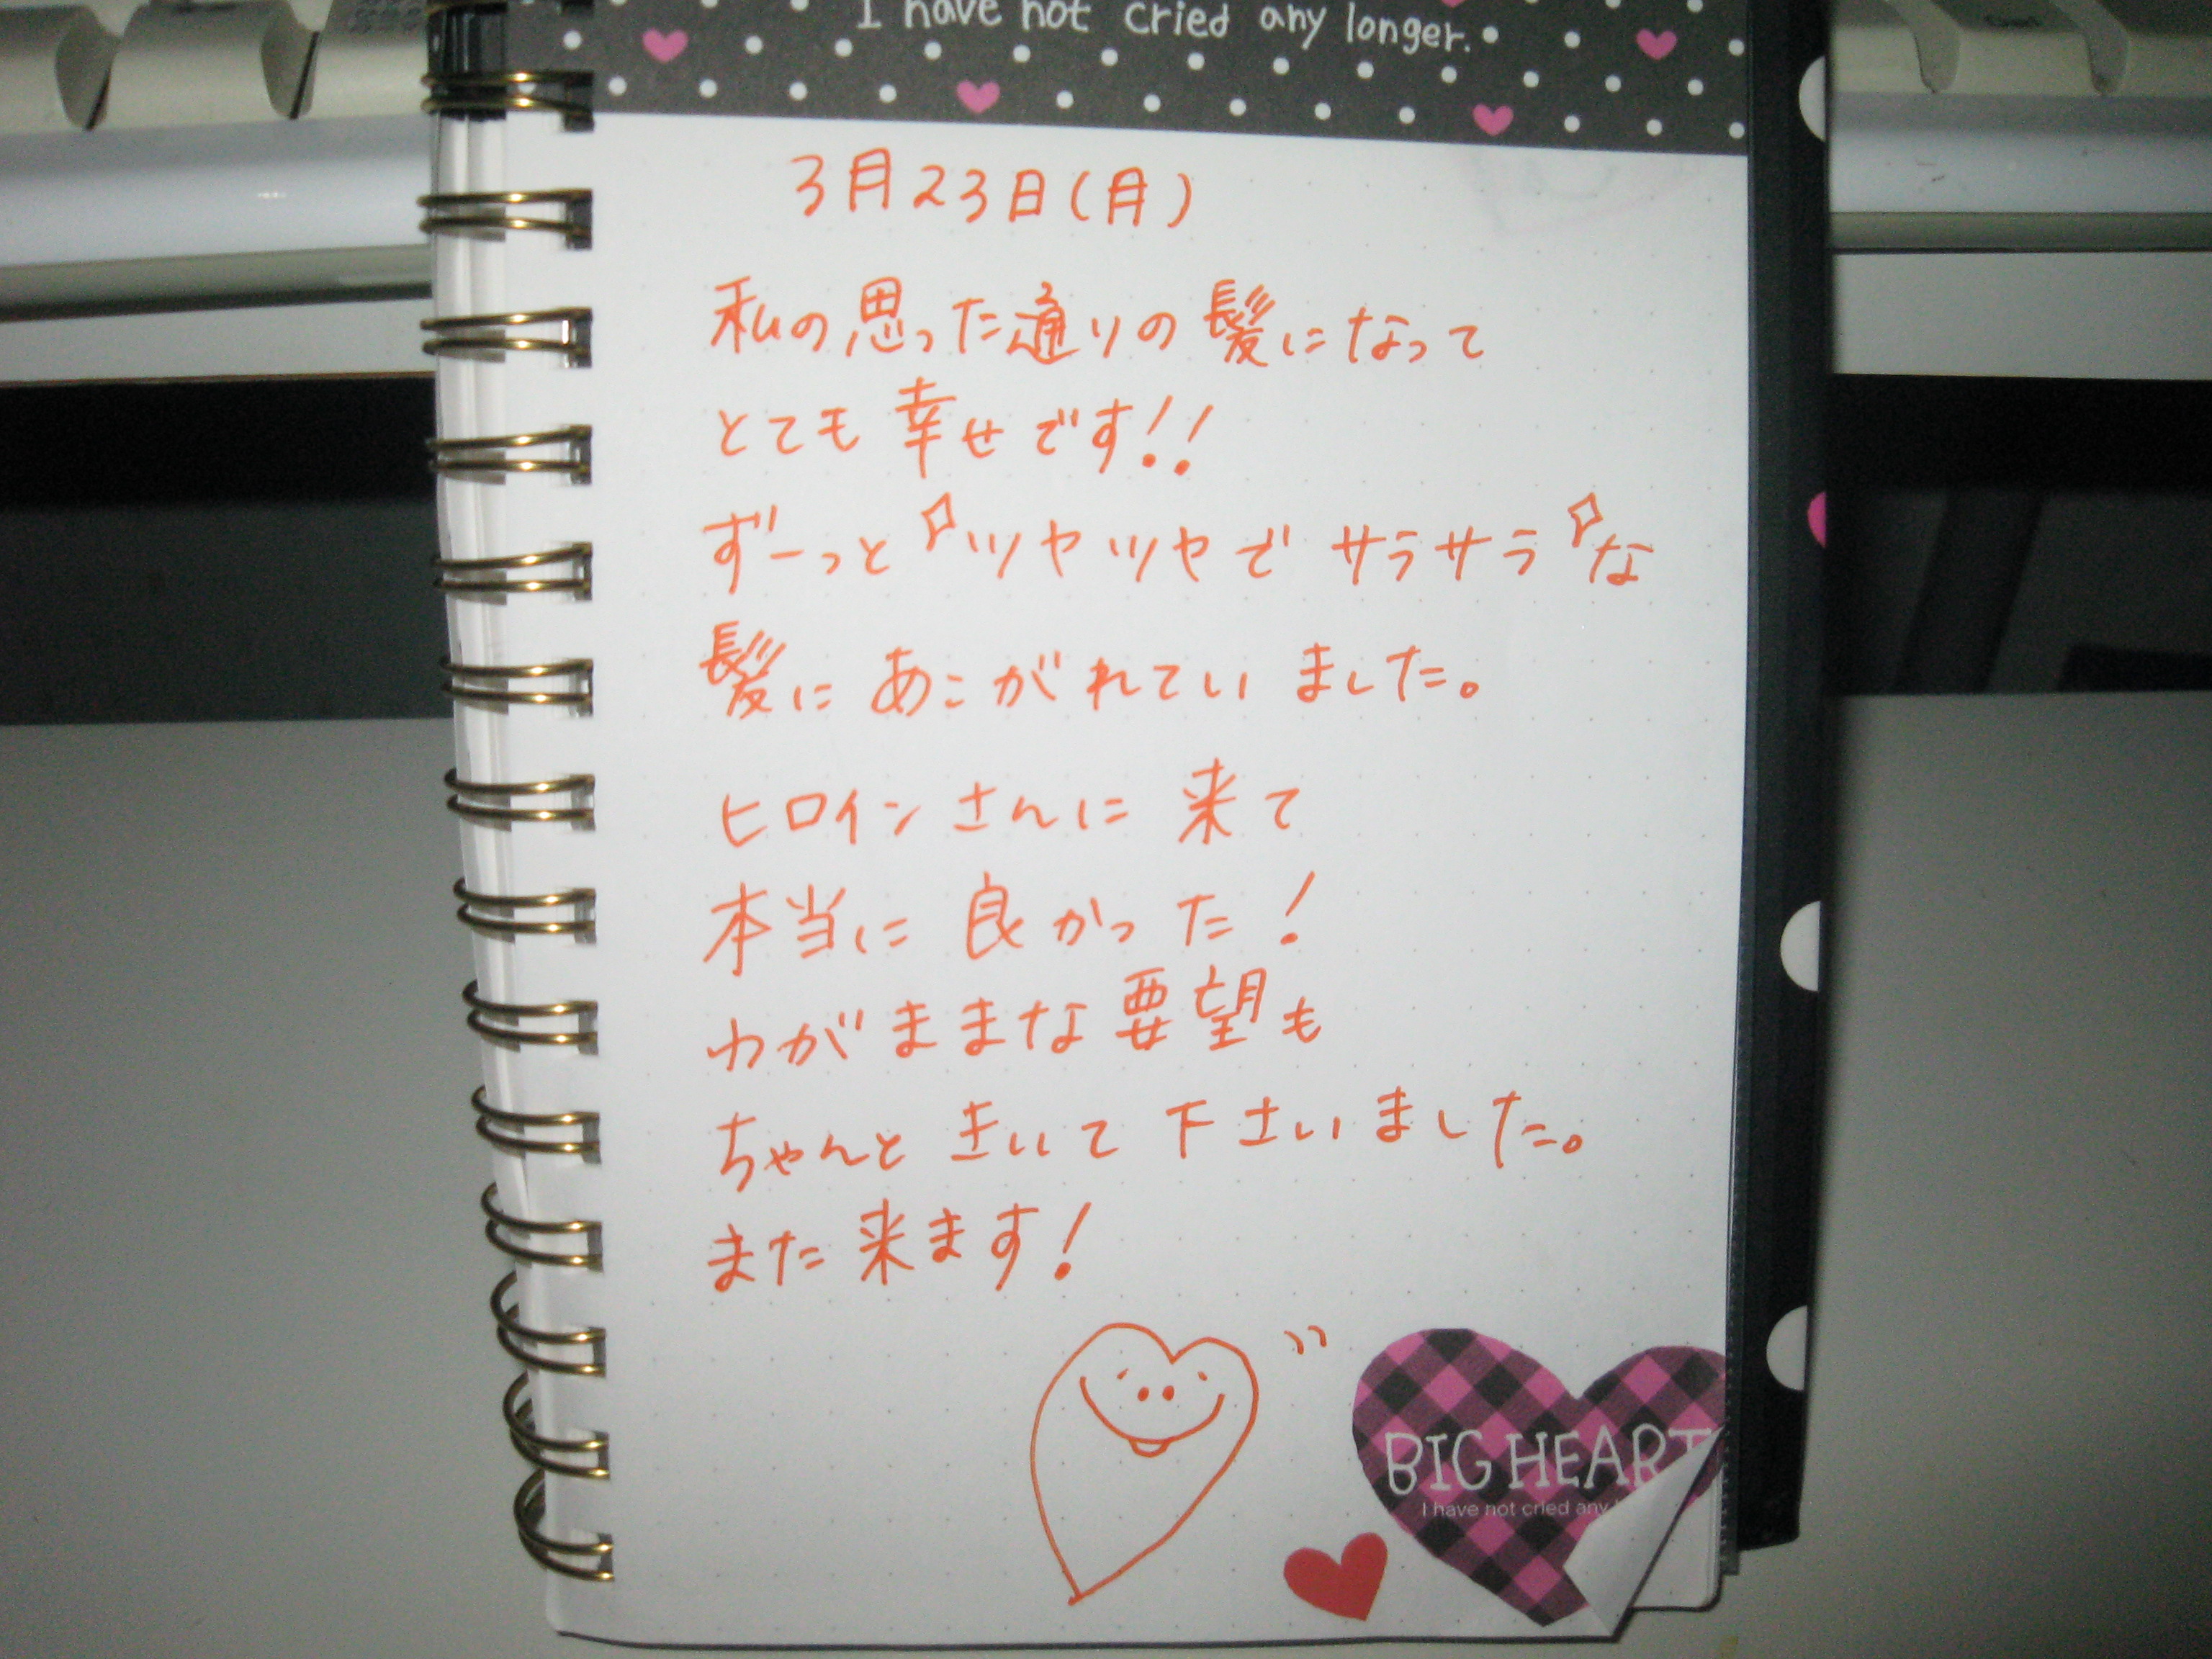 I have not cried any longer.
3月23日(月)
私の思った通りの髪になって
とても幸せです!!
ずーっと『ツヤツヤでサラサラ』な
髪にあこがれていました。
ヒロインさんに来て
本当に良かった!
わがままな要望も
ちゃんときいて下さいました。
また来ます!
BIG HEART
I have not cried any